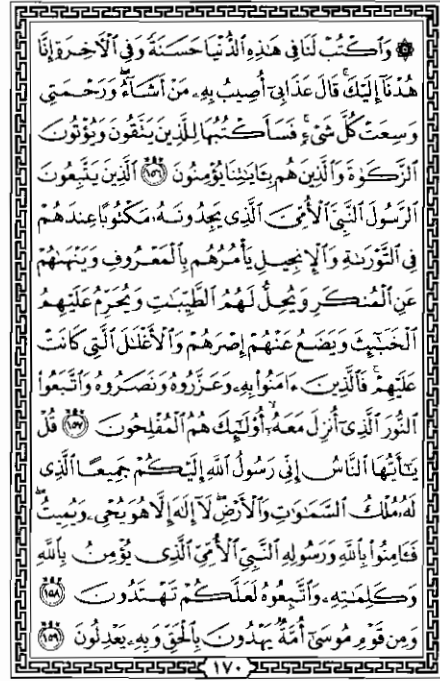 ۞ وَٱكۡتُبۡ لَنَا فِى هَٰذِهِ ٱلدُّنۡيَا حَسَنَةً وَفِى ٱلۡأَخِرَةِ إِنَّا
هُدۡنَآ إِلَيۡكَۚ قَالَ عَذَابِىٓ أُصِيبُ بِهِۦ مَنۡ أَشَآءُۖ وَرَحۡمَتِى
وَسِعَتۡ كُلَّ شَىۡءٍۚ فَسَأَكۡتُبُهَا لِلَّذِينَ يَتَّقُونَ وَيُؤۡتُونَ
ٱلزَّكَوٰةَ وَٱلَّذِينَ هُم بِـَٔايَٰتِنَا يُؤۡمِنُونَ ١٥٦ ٱلَّذِينَ يَتَّبِعُونَ
ٱلرَّسُولَ ٱلنَّبِىَّ ٱلۡأُمِّىَّ ٱلَّذِى يَجِدُونَهُۥ مَكۡتُوبًا عِندَهُمۡ
فِى ٱلتَّوۡرَىٰةِ وَٱلۡإِنجِيلِ يَأۡمُرُهُم بِٱلۡمَعۡرُوفِ وَيَنۡهَىٰهُمۡ
عَنِ ٱلۡمُنكَرِ وَيُحِلُّ لَهُمُ ٱلطَّيِّبَٰتِ وَيُحَرِّمُ عَلَيۡهِمُ
ٱلۡخَبَٰٓئِثَ وَيَضَعُ عَنۡهُمۡ إِصۡرَهُمۡ وَٱلۡأَغۡلَٰلَ ٱلَّتِى كَانَتۡ
عَلَيۡهِمۡۚ فَٱلَّذِينَ ءَامَنُواْ بِهِۦ وَعَزَّرُوهُ وَنَصَرُوهُ وَٱتَّبَعُواْ
ٱلنُّورَ ٱلَّذِىٓ أُنزِلَ مَعَهُۥٓۙ أُوْلَٰٓئِكَ هُمُ ٱلۡمُفۡلِحُونَ ١٥٧ قُلۡ
يَٰٓأَيُّهَا ٱلنَّاسُ إِنِّى رَسُولُ ٱللَّهِ إِلَيۡكُمۡ جَمِيعًا ٱلَّذِى
لَهُۥ مُلۡكُ ٱلسَّمَٰوَٰتِ وَٱلۡأَرۡضِۖ لَآ إِلَٰهَ إِلَّا هُوَ يُحۡىِۦ وَيُمِيتُۖ
فَـَٔامِنُواْ بِٱللَّهِ وَرَسُولِهِ ٱلنَّبِىِّ ٱلۡأُمِّىِّ ٱلَّذِى يُؤۡمِنُ بِٱللَّهِ
وَكَلِمَٰتِهِۦ وَٱتَّبِعُوهُ لَعَلَّكُمۡ تَهۡتَدُونَ ١٥٨
وَمِن قَوۡمِ مُوسَىٰٓ أُمَّةٌ يَهۡدُونَ بِٱلۡحَقِّ وَبِهِۦ يَعۡدِلُونَ ١٥٩
١٧٠